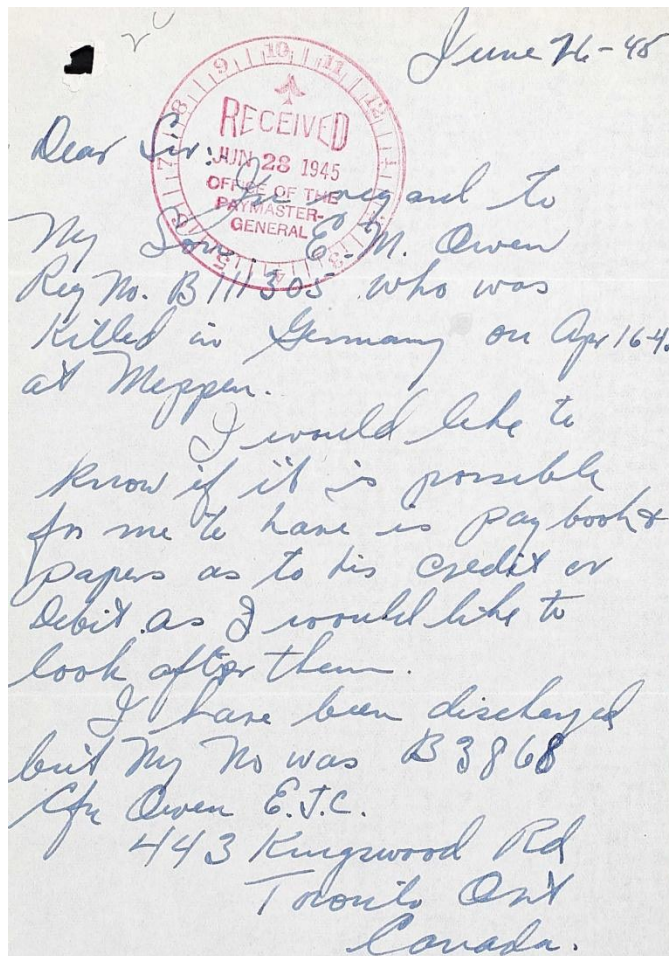 June 26-45
10
9
11
8
12
7
1
6
5
4
3
RECEIVED
JUN 28 1945
OFFICE OF THE
PAYMASTER-
GENERAL
Dear Sir:
In regard to
My Son. E. M. Owen
Reg No. B 111305 who was
Killed in Germany on Apr 16-4
at Meppen.
I would like to
know if it is possible
for me to have is pay book &
papers as to his credit or
Debit. as I would like to
look after them.
I have been discharged
but My No was B 3868
Cfn Owen E.J.C.
443 Kingswood Rd
Toronto Ont
Canada.